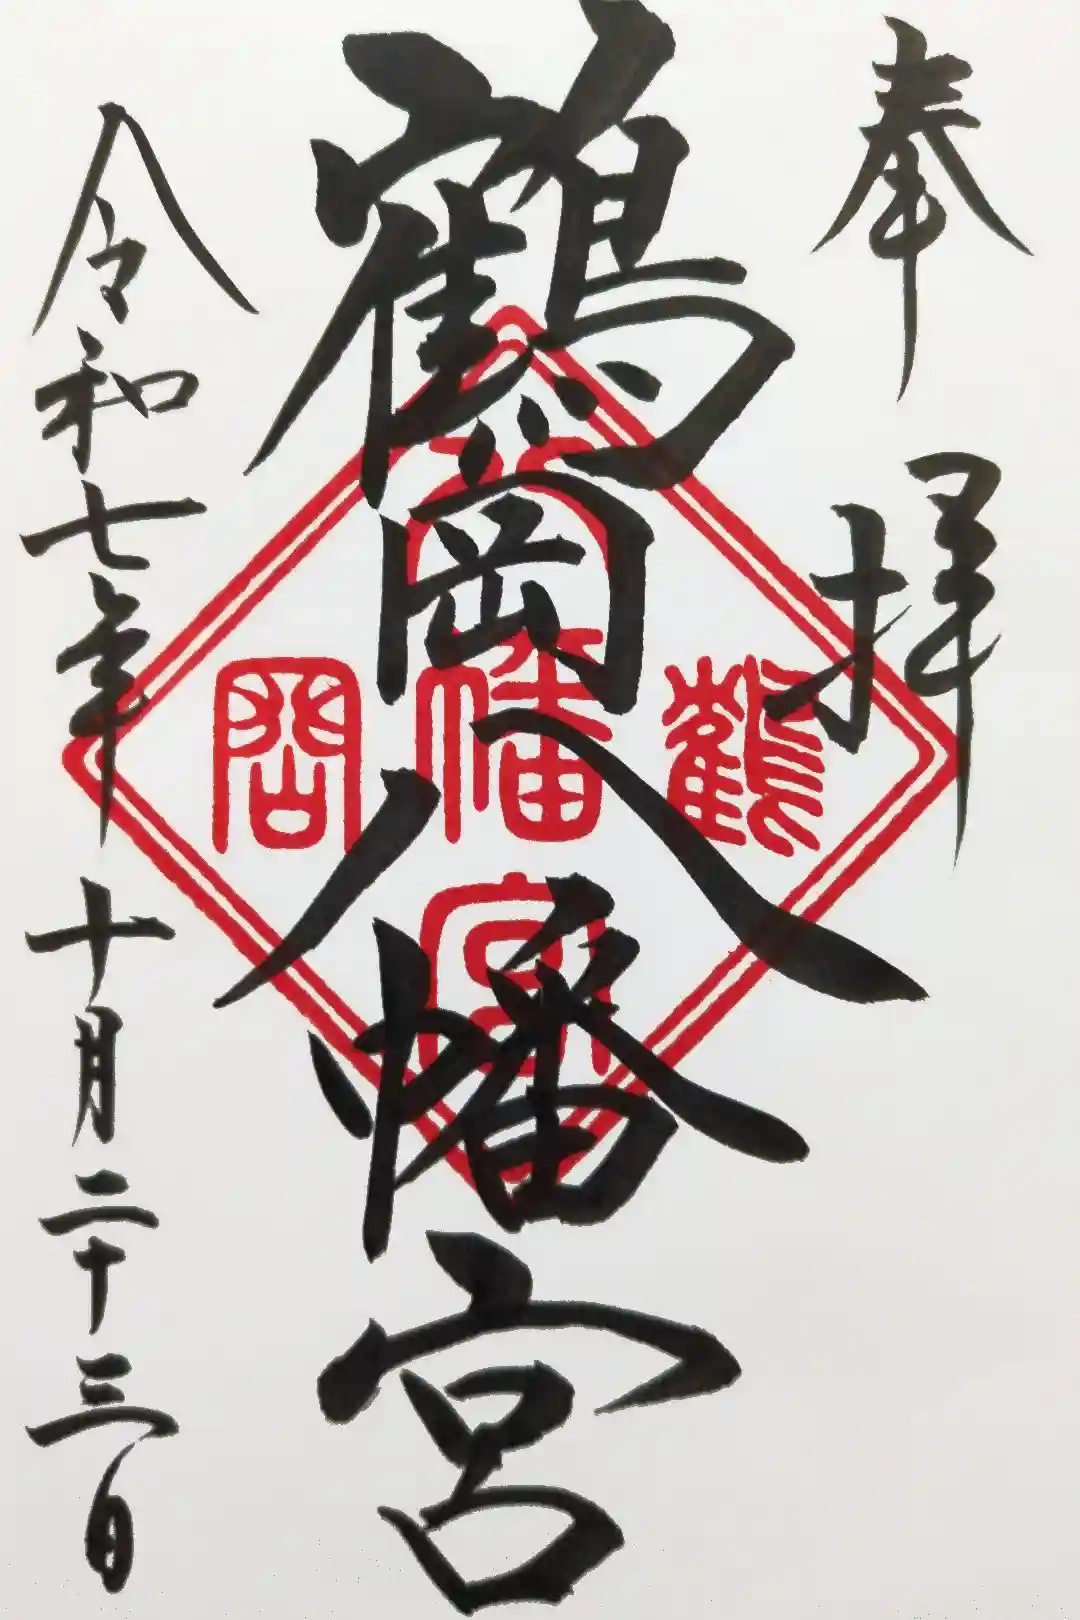 奉拝
鶴岡八幡宮
鶴
八
幡
宮
岡
令和七年十月二十三日